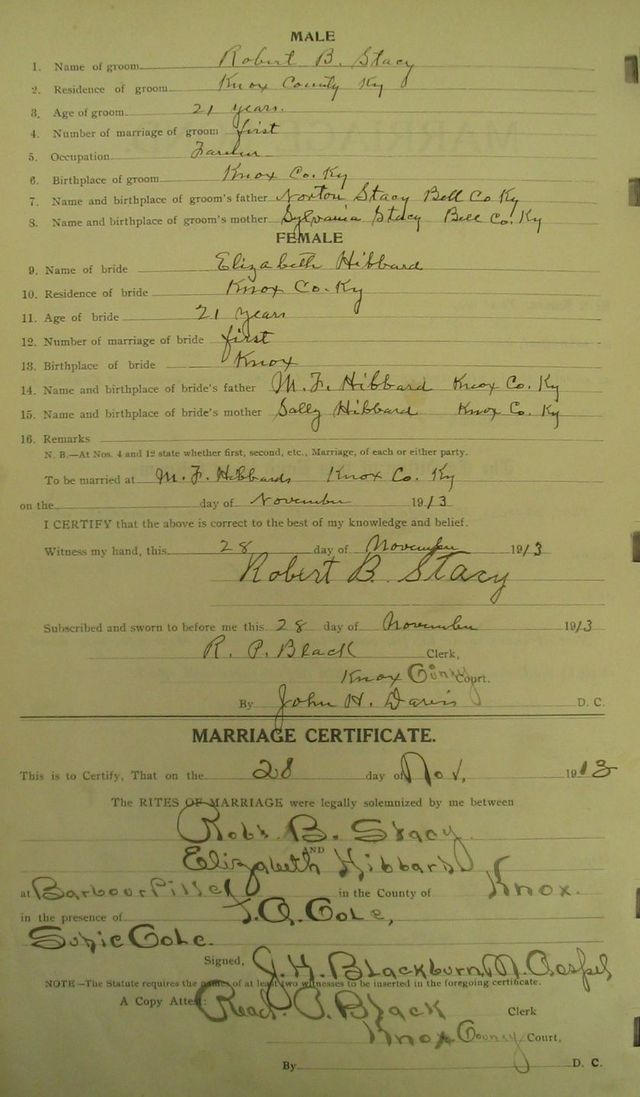 MALE
1. Name of groom Robert B. Stacy
2. Residence of groom Knox County Ky
3. Age of groom 21 years.
4. Number of marriage of groom first
5. Occupation Farmer
6. Birthplace of groom Knox Co. Ky
7. Name and birthplace of groom's father Norton Stacy Bell Co Ky
8. Name and birthplace of groom's mother Sylvania Stacy Bell Co. Ky
FEMALE
9. Name of bride Elizabeth Hibbard
10. Residence of bride Knox Co. Ky
11. Age of bride 21 years
12. Number of marriage of bride first
13. Birthplace of bride Knox
14. Name and birthplace of bride's father M. F. Hibbard Knox Co. Ky
15. Name and birthplace of bride's mother Sally Hibbard Knox Co. Ky
16. Remarks
N. B.—At Nos. 4 and 12 state whether first, second, etc., Marriage, of each or either party.
To be married at M. F. Hibbards Knox Co. Ky
on the day of November 1913
I CERTIFY that the above is correct to the best of my knowledge and belief.
Witness my hand, this 28 day of November 1913
Robert B. Stacy
Subscribed and sworn to before me this 28 day of November 1913
R. P. Black Clerk,
Knox County Court.
By John H. Davis D. C.
MARRIAGE CERTIFICATE.
This is to Certify, That on the 28 day of Nov. 1913
The RITES OF MARRIAGE were legally solemnized by me between
Robt. B. Stacy
AND
Elizabeth Hibbard
at Barbourville in the County of Knox.
in the presence of Cole,
Suzie Cole.
Signed, J. H. Blackburn, M. Gospel
NOTE—The Statute requires the names of at least two witnesses to be inserted in the foregoing certificate.
A Copy Attest: Read P. Black Clerk
Knox County Court,
By D. C.